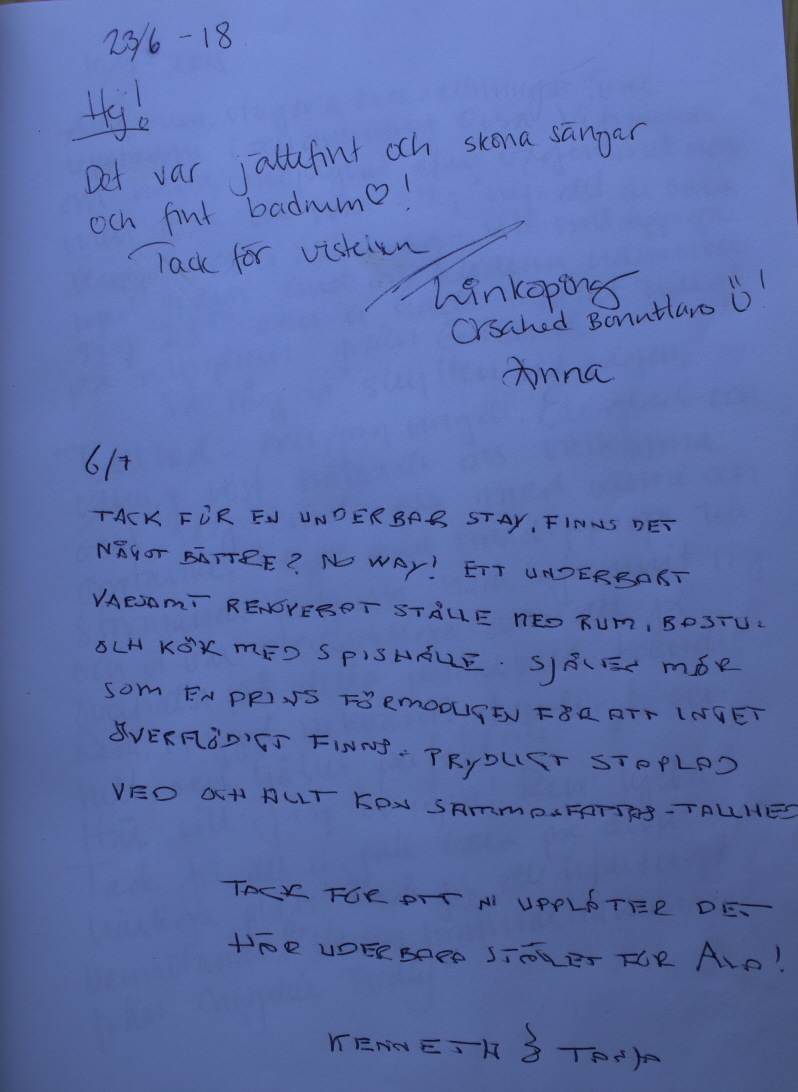 23/6 - 18
Hej!
Det var jättefint och sköna sängar
och fint badrum♡!
Tack för visteisen
Linköping
Orsahed
Anna
6/7
TACK FÖR EN UNDERBAR STAY. FINNS DET
NÅGOT BÄTTRE? NO WAY! ETT UNDERBART
VARSAMT RENOVERAT STÄLLE MED RUM, BASTU.
OCH KÖK MED SPISHÄLLE. SJÄLEN MÅR
SOM EN PRINS FÖRMODLIGEN FÖR ATT INGET
ÖVERFLÖDIGT FINNS. PRYDLIGT STAPLAD
VED OCH ALLT KAN SAMMANFATTAS - TALLHED
TACK FÖR ATT NI UPPLÅTER DET
HÄR UDERBARA STÄLLET FÖR ALLA!
KENNETH & TANJA